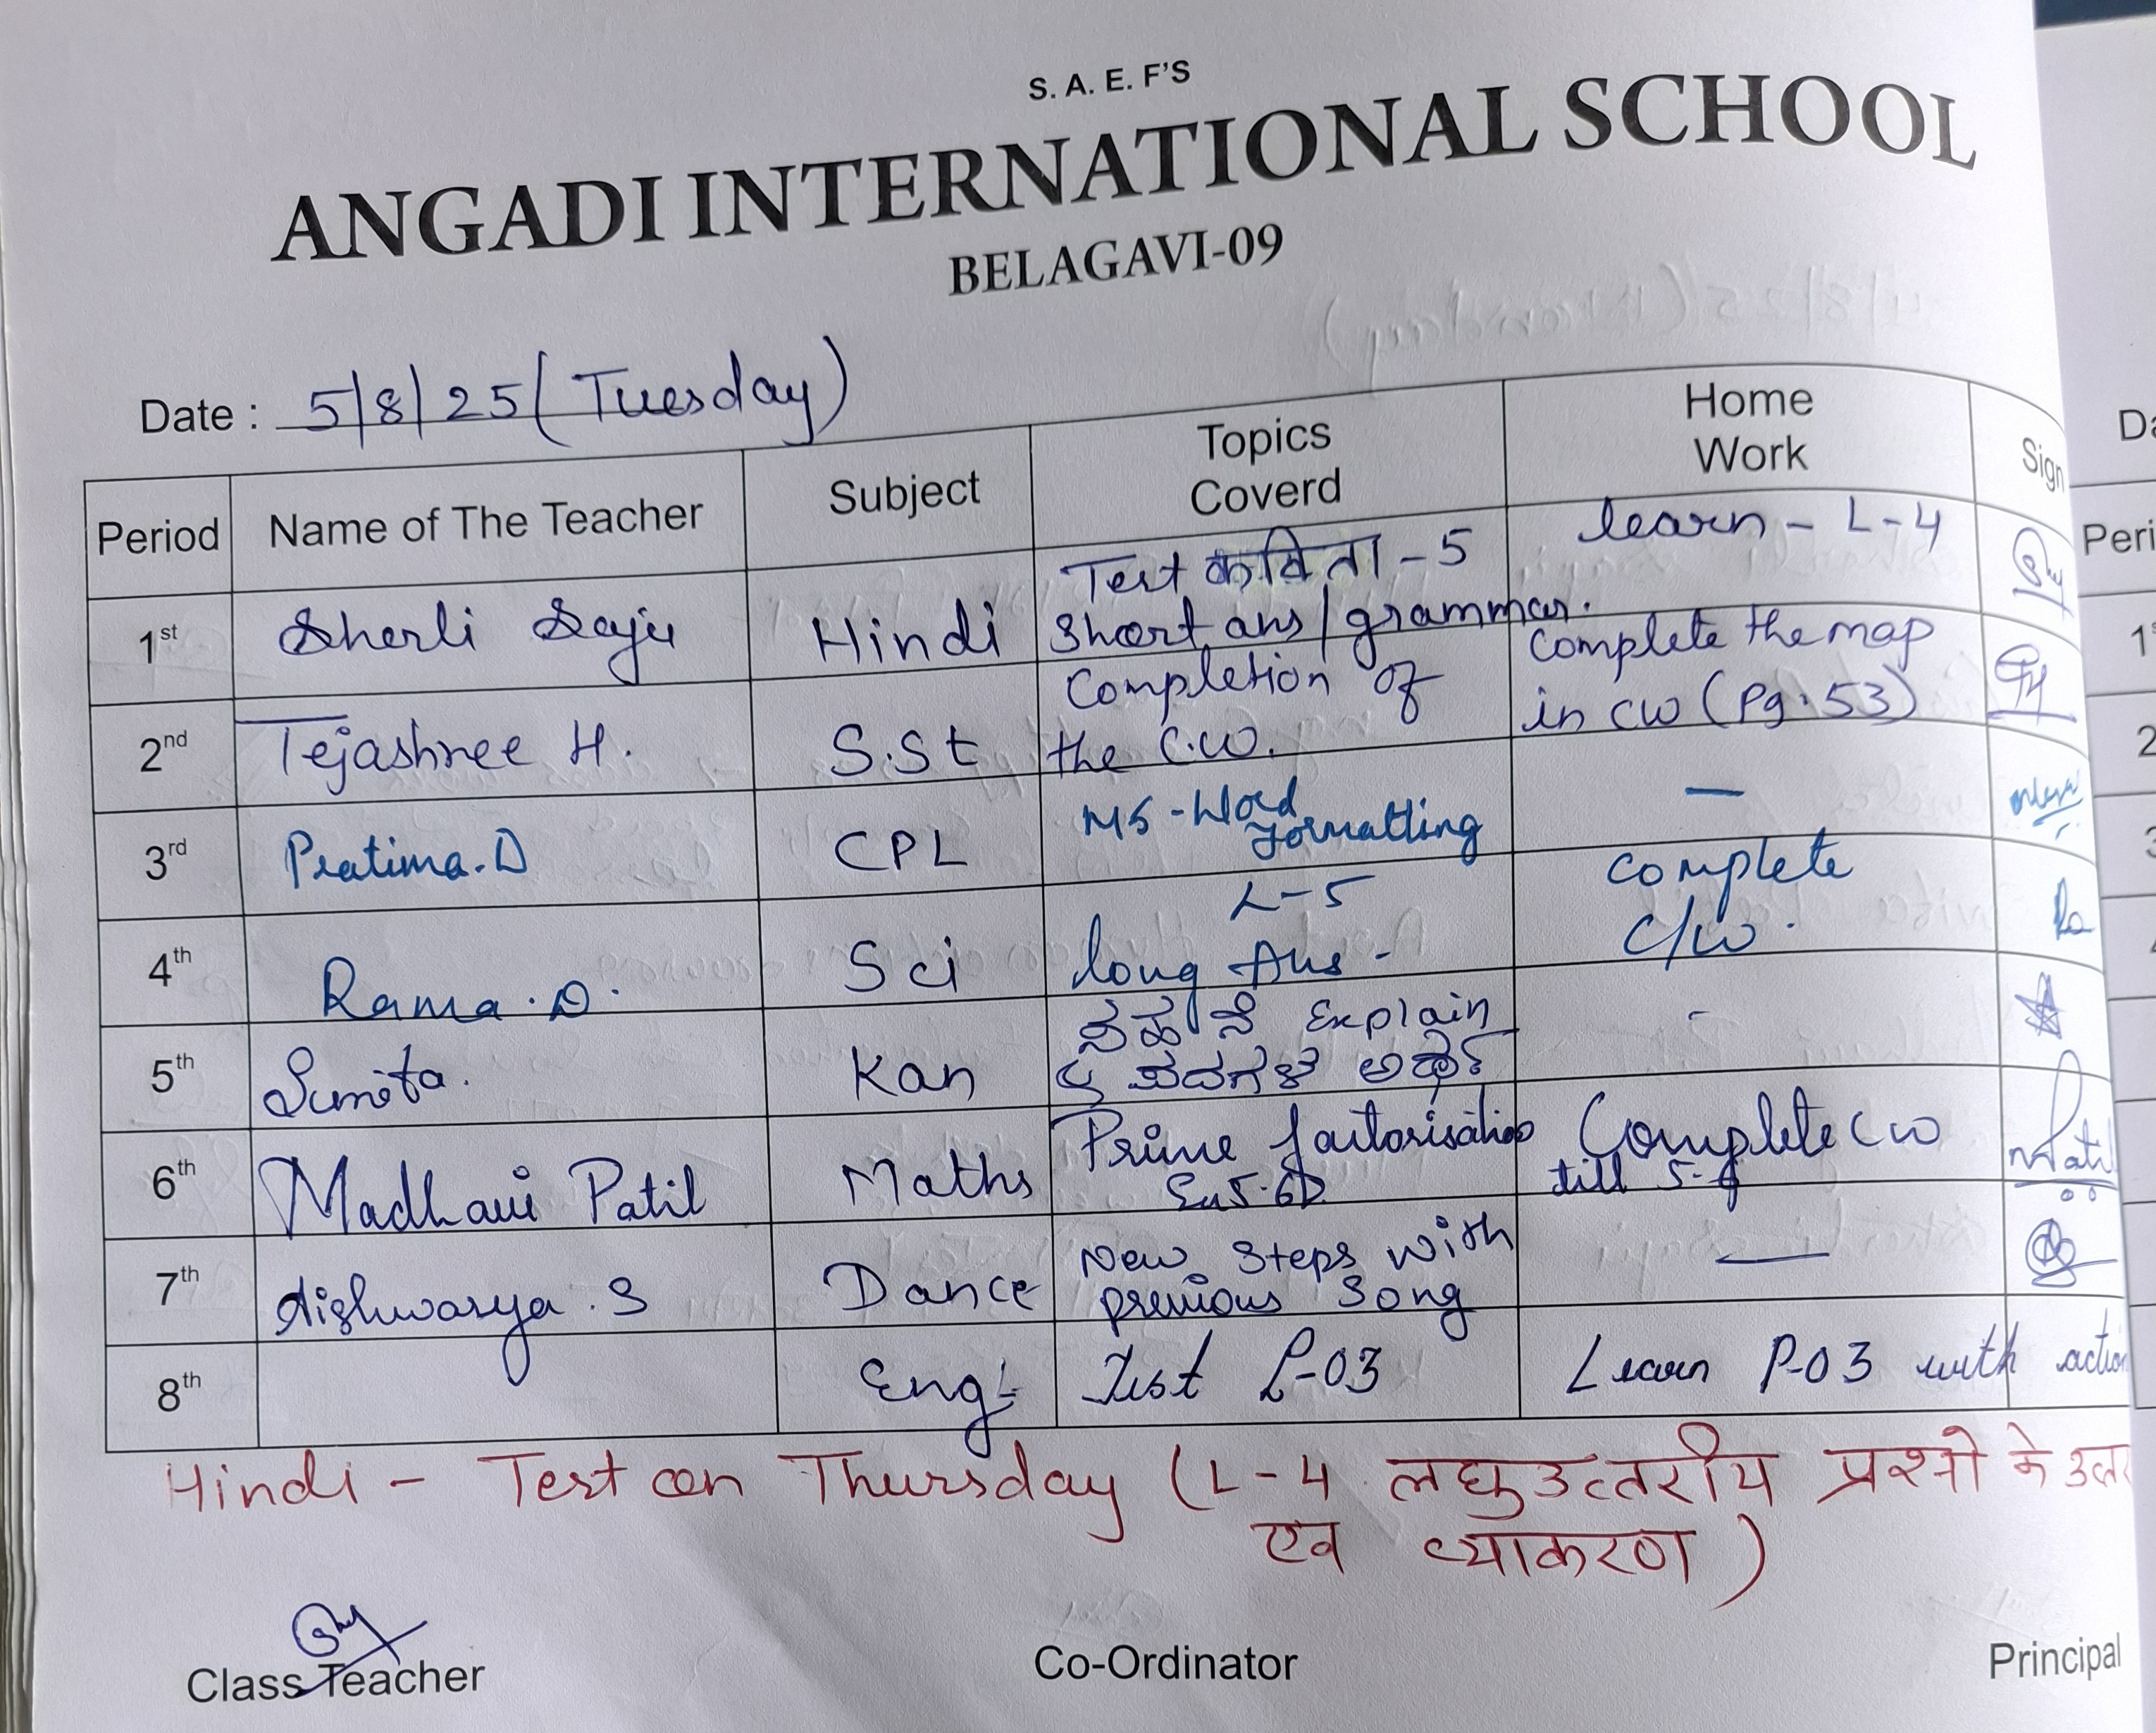 S. A. E. F'S
ANGADI INTERNATIONAL SCHOOL
BELAGAVI-09
Date : 5/8/25 (Tuesday)
Period Name of The Teacher Subject Topics Coverd Home Work Sign
1st Sherli Saju Hindi Test कविता - 5 Short ans/grammar. learn - L-4
2nd Tejashree H. S.St Completion of the C.W. Complete the map in CW (Pg. 53)
3rd Pratima.D CPL MS-Word Formatting —
4th Rama.D. Sci L-5 long Ans - complete c/w.
5th Sunita. Kan Explain ಪದಗಳ ಅರ್ಥ -
6th Madhavi Patil Maths Prime factorisation Complete CW till
7th Aishwarya.S Dance New Steps with previous Song —
8th Eng Test P-03 Learn P-03 with action
Hindi - Test on Thursday (L-4 लघुउत्तरीय प्रश्नो के
एव व्याकरण)
Class Teacher Co-Ordinator Principal
Peri